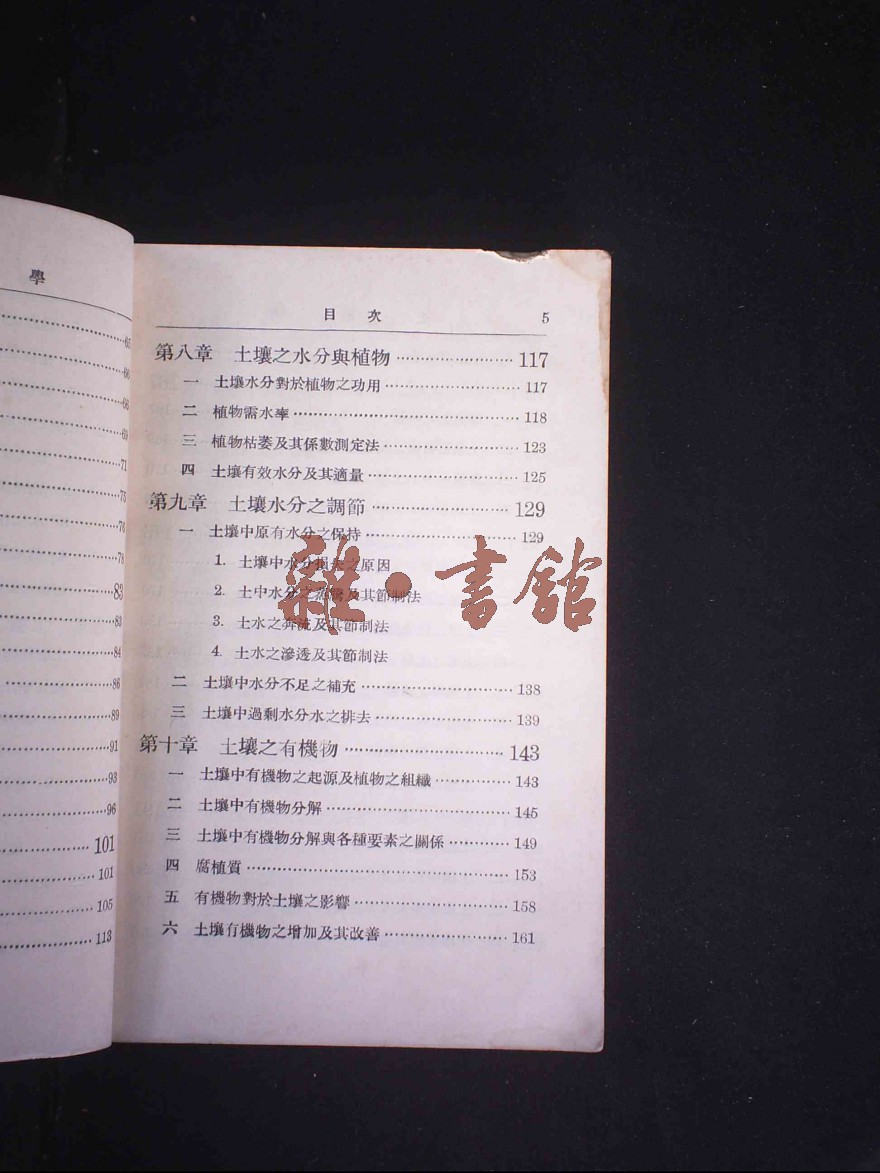 學
65
66
66
69
71
75
76
78
83
83
84
86
89
91
93
96
101
101
105
113
目次 5
第八章 土壤之水分與植物 117
一 土壤水分對於植物之功用 117
二 植物需水率 118
三 植物枯萎及其係數測定法 123
四 土壤有效水分及其適量 125
第九章 土壤水分之調節 129
一 土壤中原有水分之保持 129
1. 土壤中水分損失之原因
2. 土中水分之蒸發及其節制法
3. 土水之奔流及其節制法
4. 土水之滲透及其節制法
二 土壤中水分不足之補充 138
三 土壤中過剩水分水之排去 139
第十章 土壤之有機物 143
一 土壤中有機物之起源及植物之組織 143
二 土壤中有機物分解 145
三 土壤中有機物分解與各種要素之關係 149
四 腐植質 153
五 有機物對於土壤之影響 158
六 土壤有機物之增加及其改善 161
雜·書館